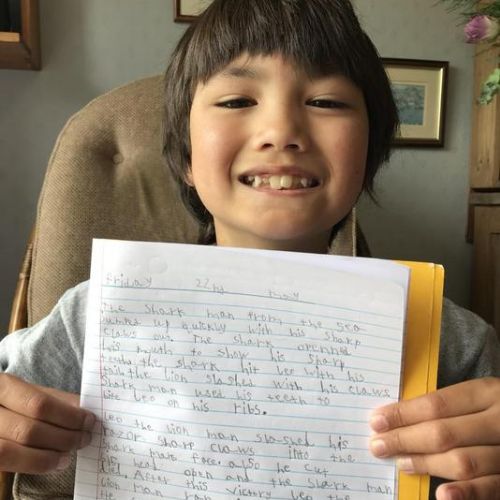 Friday 22nd May
The Shark man from the sea
Jumped up quickly with his sharp
claws out. The shark openned
his mouth to show his sharp
teeth. the shark hit Leo with his
tail. the Lion slashed with his claws.
Shark man used his teeth to
bite Leo on his ribs.
Leo the lion man slashed his
razor sharp claws into the
Shark mans face. also he cut
his head open and the shark man
died. After this victory Leo the
Lion man ran